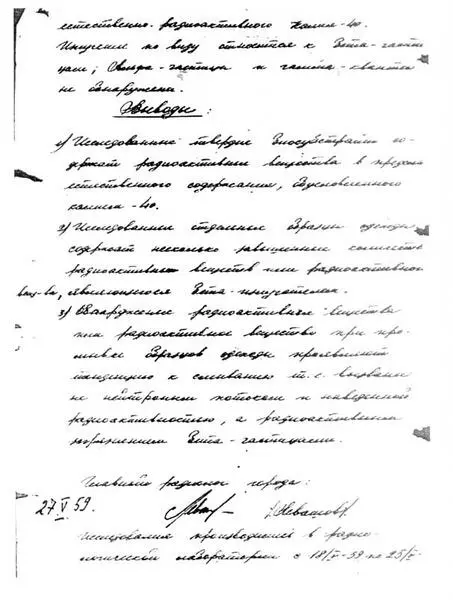 естественно-радиоактивного Калия-40.
Излучение по виду относится к Бета-части
цам; Альфа-частицы и гамма-кванты
не обнаружены.
Выводы:
1) Исследованные твердые биосубстраты со-
держат радиоактивные вещества в пределах
естественного содержания, обусловленного
калием-40.
2) Исследованные отдельные образцы одежды
содержат несколько завышенные количества
радиоактивных веществ или радиоактивного
вещ-ва, являющегося Бета-излучателем.
3) Обнаруженные радиоактивные вещества
или радиоактивное вещество при про-
мывке образцов одежды проявляют
тенденцию к смыванию т.е. вызваны
не нейтронным потоком и наведенной
радиоактивностью, а радиоактивным
загрязнением Бета-частицами.
Главный радиолог города:
27/V 59. /Левашов/
Исследования производились в радио-
логической лаборатории с 18/V-59 по 25/V-